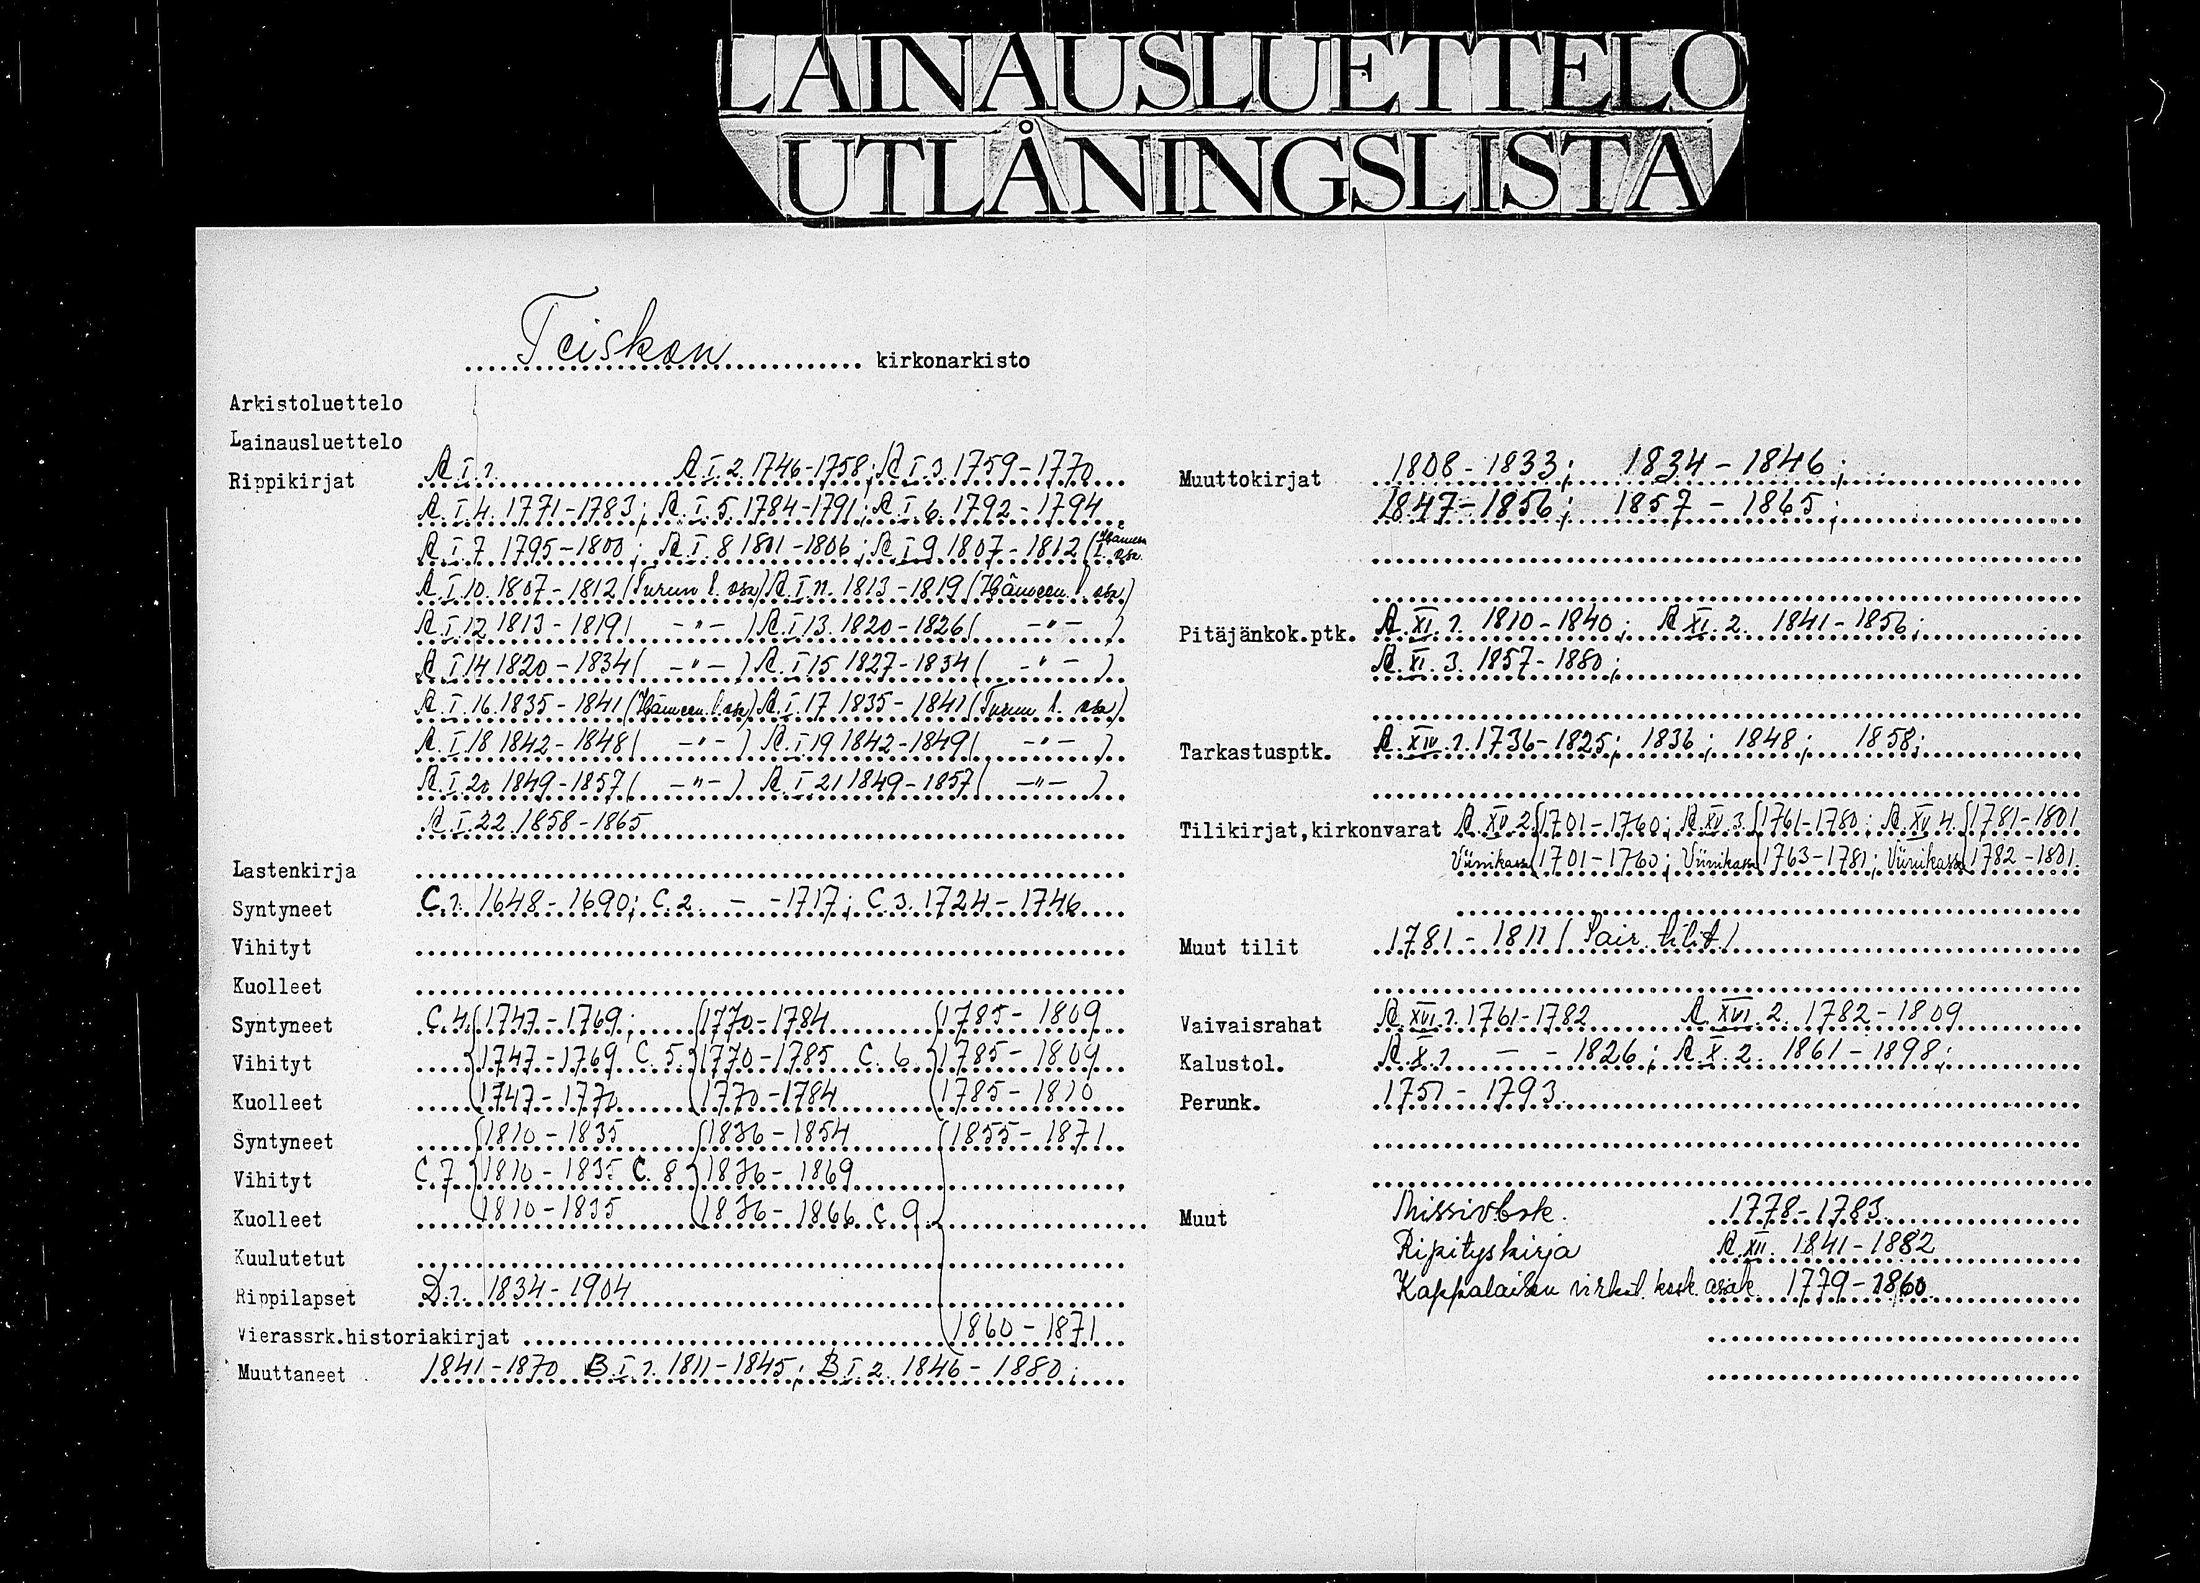 LAINAUSLUETTELO
UTLÅNINGSLISTA
Teiskon kirkonarkisto
Arkistoluettelo
Lainausluettelo
Rippikirjat A.I.1. A.I.2.1746-1758; A.I.3.1759-1770
A.I.4. 1771-1783; A.I.5.1784-1791; A.I.6.1792-1794
A.I.7.1795-1800; A.I.8 1801-1806; A.I.9.1807-1812 (Hämeen l. osa
A.I.10.1807-1812 (Turun l. osa) A.I.11. 1813-1819 (Hämeen l. osa)
A.I.12 1813-1819 ( -"- ) A.I.13.1820-1826 ( -"- )
A.I.14 1820-1834 ( -"- ) A.I.15 1827-1834 ( -"- )
A.I.16.1835-1841 (Hämeen l. osa) A.I.17 1835-1841 (Turun l. osa)
A.I.18 1842-1848 ( -"- ) A.I.19 1842-1849 ( -"- )
A.I.20 1849-1857 ( -"- ) A.I.21 1849-1857 ( -"- )
A.I.22.1858-1865
Lastenkirja
Syntyneet C.1. 1648-1690; C.2. - -1717; C.3.1724-1746
Vihityt
Kuolleet
Syntyneet C.4. 1747-1769; 1770-1784 1785-1809
Vihityt 1747-1769 C.5. 1770-1785 C.6. 1785-1809
Kuolleet 1747-1770 1770-1784 1785-1810
Syntyneet 1810-1835 1836-1854 1855-1871
Vihityt C.7. 1810-1835 C.8. 1836-1869
Kuolleet 1810-1835 1836-1866 C.9.
Kuulutetut
Rippilapset D.1. 1834-1904
Vierassrk.historiakirjat 1860-1871
Muuttaneet 1841-1870 B.I.1.1811-1845; B.I.2.1846-1880;
Muuttokirjat 1808-1833; 1834-1846;
1847-1856; 1857-1865;
Pitäjänkok.ptk. A.XI.1. 1810-1840; A.XI.2. 1841-1856;
A.XI.3.1857-1880;
Tarkastusptk. A.XIV.1.1736-1825; 1836; 1848; 1858;
Tilikirjat,kirkonvarat A.XV.2. 1701-1760; A.XV.3. 1761-1780; A.XV.4. 1781-1801
Viinikassa 1701-1760; Viinikassa 1763-1781; Viinikassa 1782-1801.
Muut tilit 1781-1811 (Sair. tilit)
Vaivaisrahat A.XVI.1.1761-1782 A.XVI.2. 1782-1809
Kalustol. A.X.1. - -1826; A.X.2. 1861-1898;
Perunk. 1751-1793
Muut Missivbok. 1778-1783
Ripityskirja A.XII. 1841-1882
Kappalaisen virkat. kosk. asiak. 1779-1860